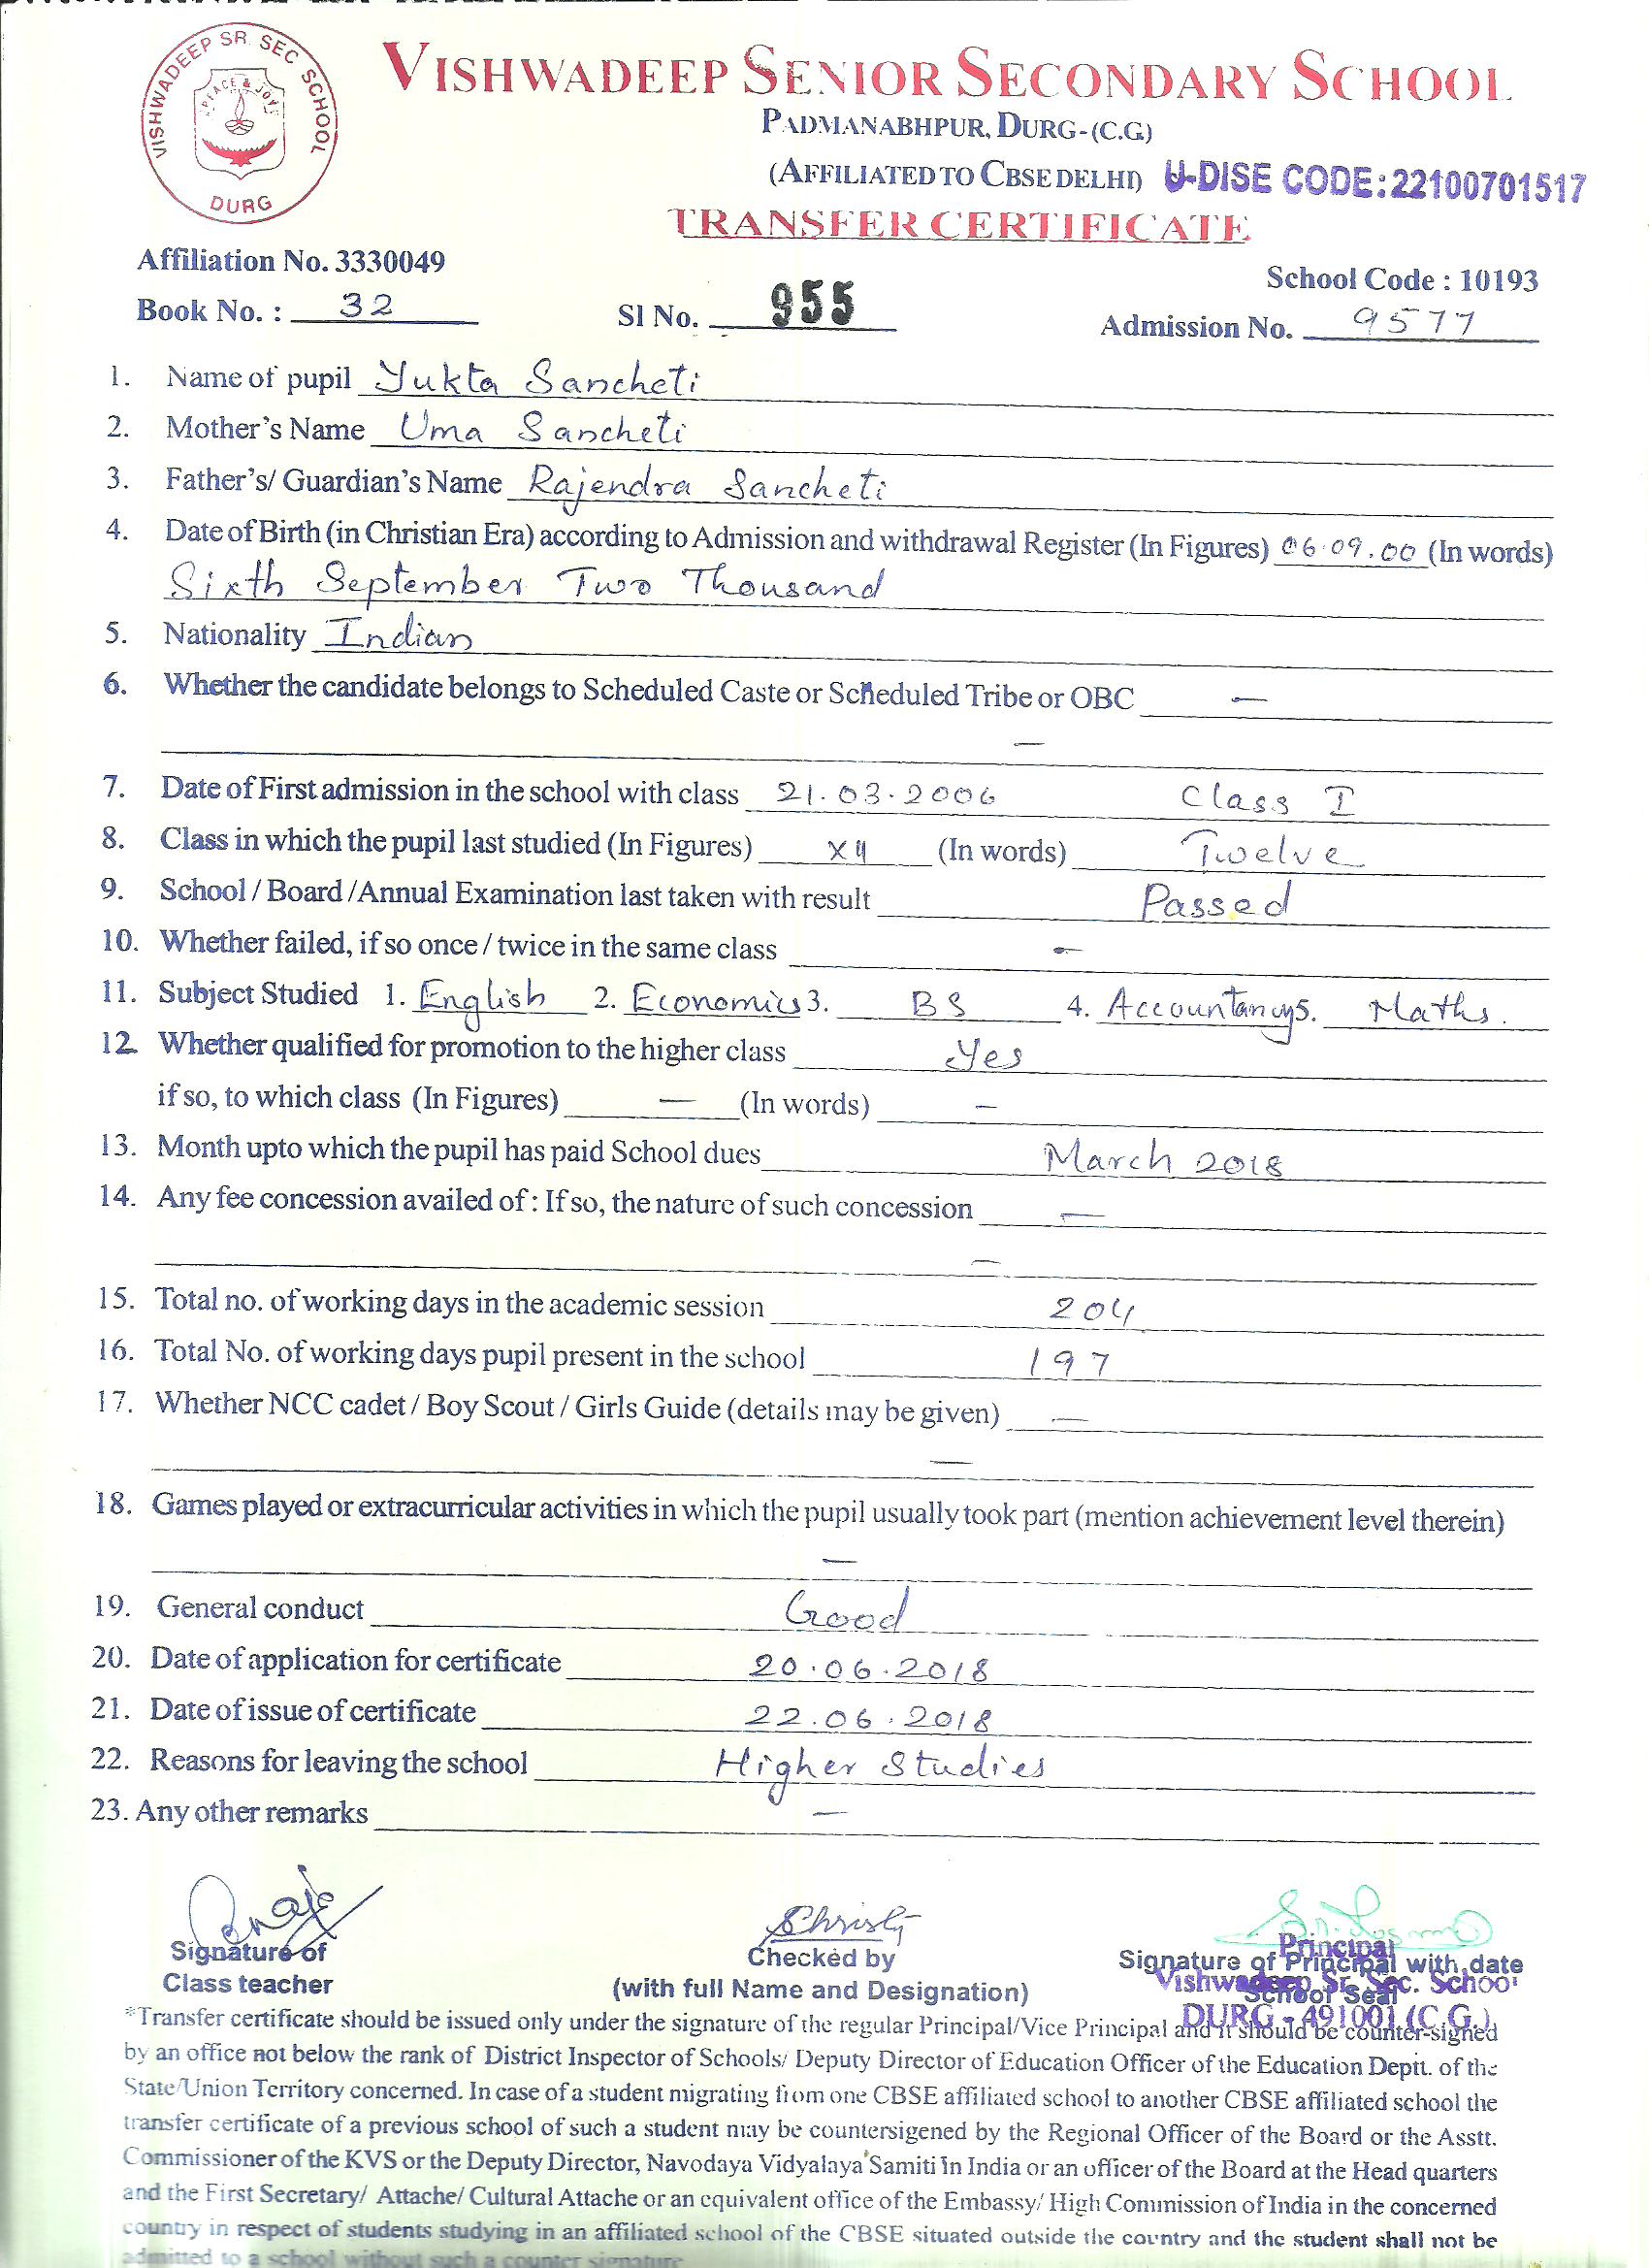 VISHWADEEP SR. SEC SCHOOL
PEACE & JOY
DURG
VISHWADEEP SENIOR SECONDARY SCHOOL
PADMANABHPUR, DURG-(C.G)
(AFFILIATED TO CBSE DELHI) U-DISE CODE:22100701517
TRANSFER CERTIFICATE
Affiliation No. 3330049
School Code : 10193
Book No. : 32 Sl No. 955 Admission No. 9577
1. Name of pupil Yukta Sancheti
2. Mother's Name Uma Sancheti
3. Father's/ Guardian's Name Rajendra Sancheti
4. Date of Birth (in Christian Era) according to Admission and withdrawal Register (In Figures) 06.09.00 (In words)
Sixth September Two Thousand
5. Nationality Indian
6. Whether the candidate belongs to Scheduled Caste or Scheduled Tribe or OBC —
—
7. Date of First admission in the school with class 21.03.2006 Class I
8. Class in which the pupil last studied (In Figures) XII (In words) Twelve
9. School / Board /Annual Examination last taken with result Passed
10. Whether failed, if so once / twice in the same class —
11. Subject Studied 1. English 2. Economics 3. BS 4. Accountancy 5. Maths.
12. Whether qualified for promotion to the higher class Yes
if so, to which class (In Figures) — (In words) —
13. Month upto which the pupil has paid School dues March 2018
14. Any fee concession availed of : If so, the nature of such concession —
—
15. Total no. of working days in the academic session 204
16. Total No. of working days pupil present in the school 197
17. Whether NCC cadet / Boy Scout / Girls Guide (details may be given) —
—
18. Games played or extracurricular activities in which the pupil usually took part (mention achievement level therein)
—
19. General conduct Good
20. Date of application for certificate 20.06.2018
21. Date of issue of certificate 22.06.2018
22. Reasons for leaving the school Higher Studies
23. Any other remarks —
Christy
Signature of
Class teacher
Checked by
(with full Name and Designation)
Signature of Principal with date
School Seal
Principal
Vishwadeep Sr. Sec. School
DURG - 491001 (C.G.)
*Transfer certificate should be issued only under the signature of the regular Principal/Vice Principal and it should be counter-signed
by an office not below the rank of District Inspector of Schools/ Deputy Director of Education Officer of the Education Deptt. of the
State/Union Territory concerned. In case of a student migrating from one CBSE affiliated school to another CBSE affiliated school the
transfer certificate of a previous school of such a student may be countersigned by the Regional Officer of the Board or the Asstt.
Commissioner of the KVS or the Deputy Director, Navodaya Vidyalaya Samiti in India or an officer of the Board at the Head quarters
and the First Secretary/ Attache/ Cultural Attache or an equivalent office of the Embassy/ High Commission of India in the concerned
country in respect of students studying in an affiliated school of the CBSE situated outside the country and the student shall not be
admitted to a school without such a counter signature